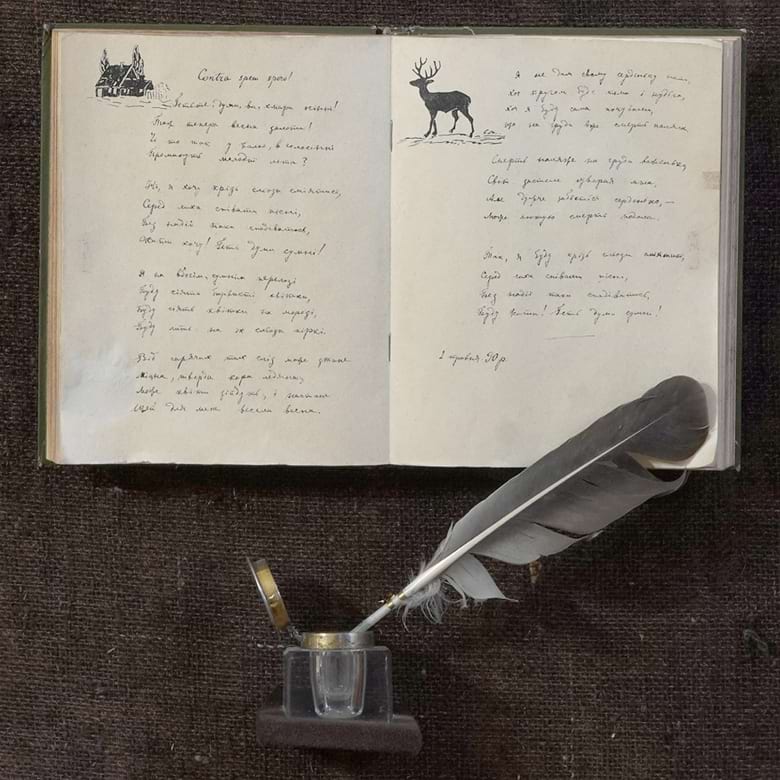 Contra spem spero!
Гетьте, думи, ви, хмари осінні!
Тож тепера весна золота!
Чи то так у жалю, в голосінні
Проминуть молоді літа?
Ні, я хочу крізь сльози сміятись,
Серед лиха співати пісні,
Без надії таки сподіватись,
Жити хочу! Геть думи сумні!
Я на вбогім, сумнім перелозі
Буду сіяти барвисті квітки,
Буду сіять квітки на морозі,
Буду лить на їх сльози гіркі.
Від гарячих тих сліз може
Міцна, тверда кора ледяна,
Може квіти зійдуть, і настане
Щей для мене весела весна.
Я не дам свому серденьку спать,
Хоч кругом буде тьма і нудьга,
Хоч я буду сама почувати,
Що на груди вже смерть наляга.
Смерть наляже на груди важенько,
Світ застеле суворая мла,
Але дужче заб'ється серденько, —
Може лютую смерть подола.
Так, я буду крізь сльози сміятись,
Серед лиха співати пісні,
Без надії таки сподіватись,
Буду жити! Геть думи сумні!
2 травня 90 р.